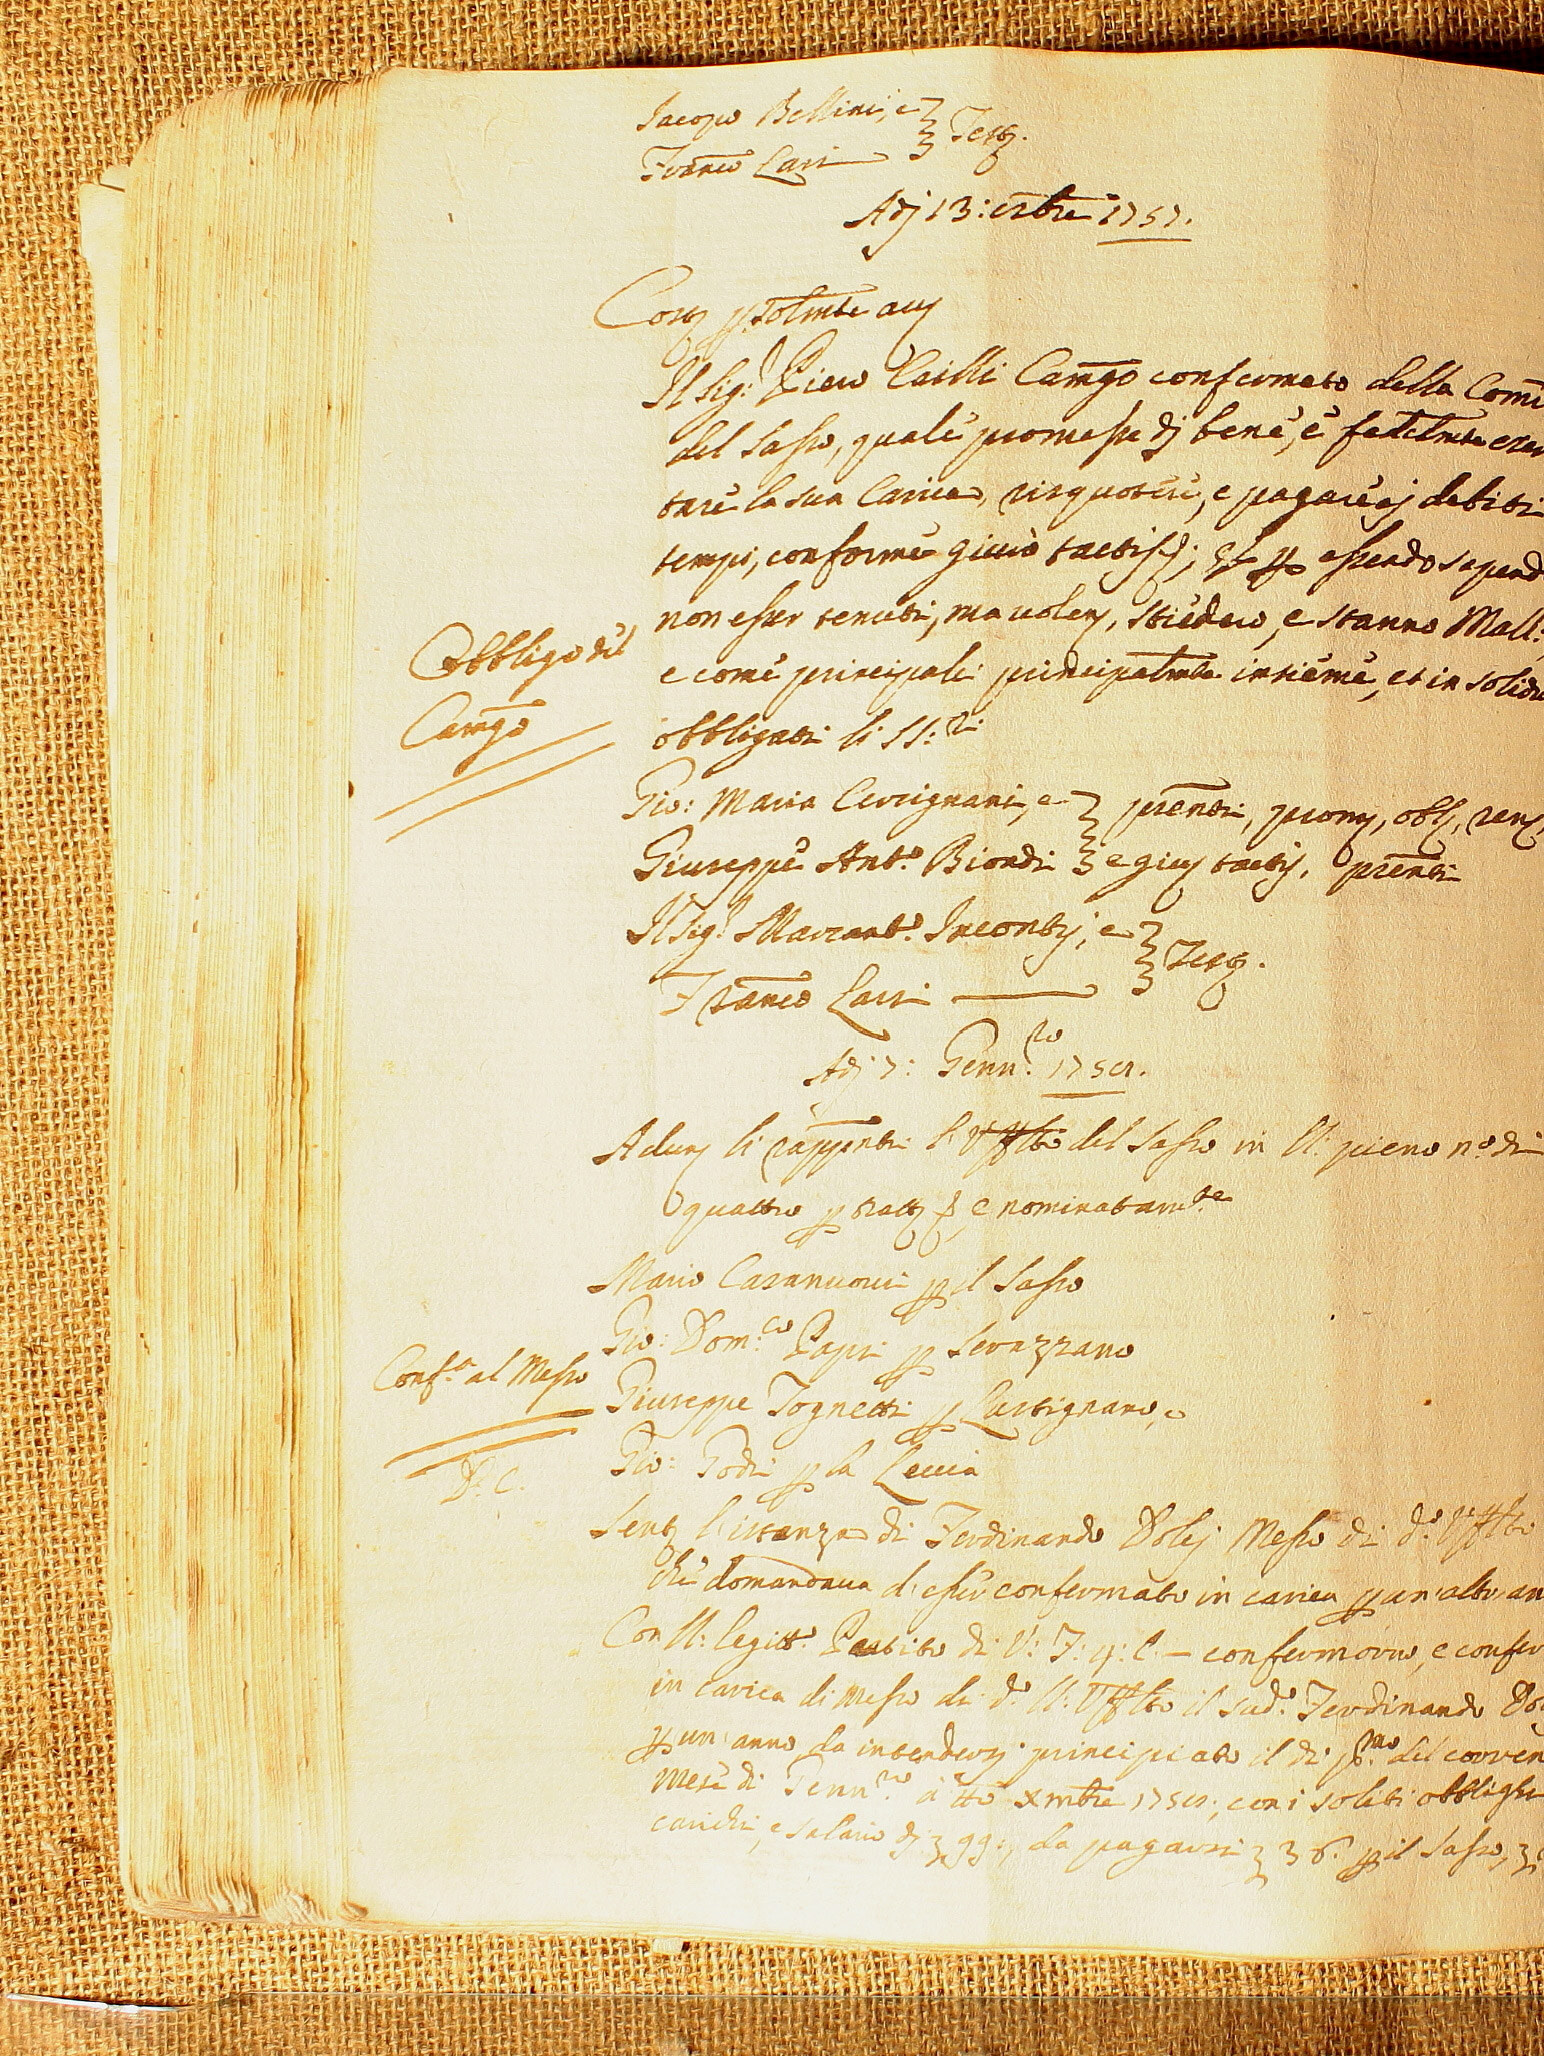 Jacopo Bellini, e
Franco Lari
Testj.
Adj 13: 9mbre 1757.
Costj psolmte avj
Il Sig:r Piero Cailli Camgo confermato della Comu
del Sasso, quale promesse dj bene, e fedelmte eser
tare la sua Carica, risquotere, e pagare aj debiti
tempi, conforme giurò tactis &; E p esso essendo sapend
non esser tenuti, ma volenj, stiedero, e stanno Mall:
e come principali principalmte insieme, et in solidu
obbligati li SS:ri
Obbligo del
Camgo
Gio: Maria Cerrignani, e
Giuseppe Anto. Biondi
prenti, promj, oblj, renj,
e giurj tactij, prenti
Il Sigr Marcanto. Incontrj, e
Franco Lari
Testj.
Adj 7: Gennro 1758.
Adunj li rappnti l'Uffto del Sasso in N: pieno no. di
quattro p tratj &, e nominatamte
Mario Casanuovi p il Sasso
Gio: Domco Papi p Serazzano
Giuseppe Tognetti p Lustignano, e
Gio: Godi p la Leccia
Confa al Messo
D: C.
Sentj l'istanza di Ferdinando Dolej Messo di do. Uffto
che domandava d'esser confermato in carica p un altro an
Con N: legitto. Partito di V: F: 4: C — confermorno, e confer
in carica di Messo di do. N: Uffto il sudo. Ferdinando Do
p un anno da intendersj principiato il di pmo del corren
Mese di Gennro a tto Xmbre 1758, con i soliti obblighi
carichi, e salario dj 99:, da pagarsi 36. p il Sasso,